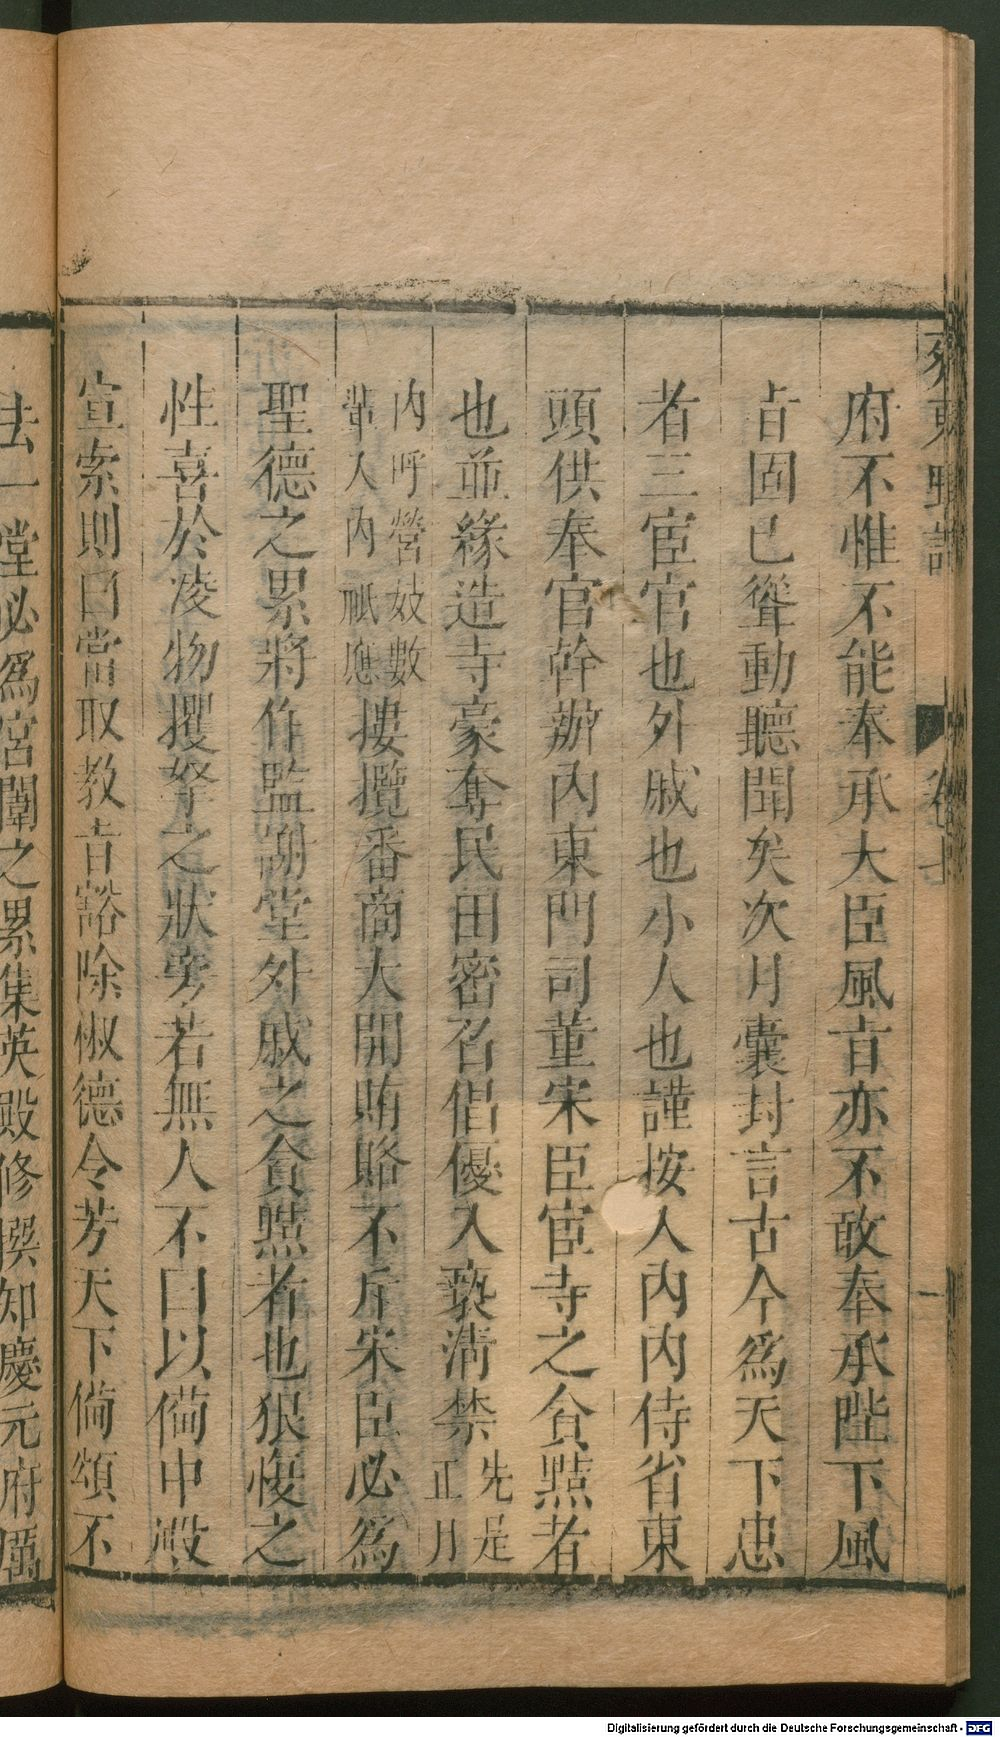 府不惟不能奉承大臣風旨亦不敢奉承陛下風
旨固已聳動聽聞矣次月囊封言古今為天下患
者三宦官也外戚也小人也謹按入內內侍省東
頭供奉官幹辦內東門司董宋臣宦寺之貪黠者
也並緣造寺豪奪民田密召倡優入褻清禁先是正月
內呼營妓數輩人內祇應摟攬番商大開賄賂不斥宋臣必為
聖德之累將作監謝堂外戚之貪黠者也狠愎之
性喜於凌物攫拏之狀旁若無人不曰以備中殿
宣索則曰當取教旨豁除椒德令芳天下備頌不
法一堂必為宮闈之累集英殿修撰知慶元府厲
齊東野語
卷七
Digitalisierung gefördert durch die Deutsche Forschungsgemeinschaft - DFG